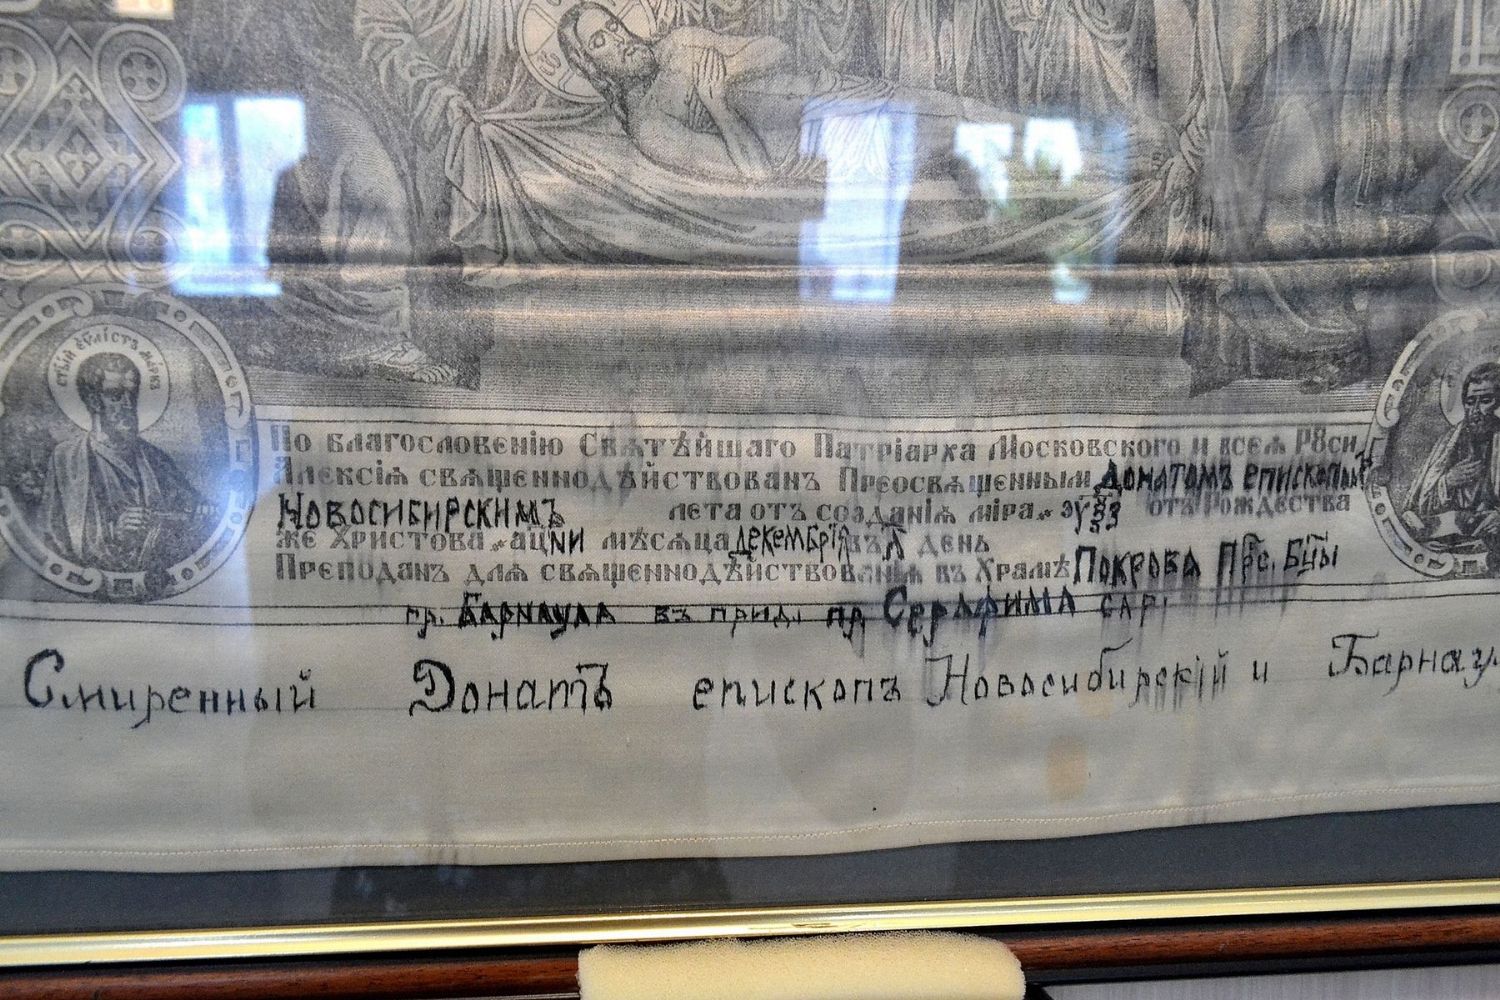 стый еѵлистъ марко
По благословенію Свѧтѣйшаго Патріарха Московскаго и всеѧ Рꙋси
Алексіѧ свѧщеннодѣйствованъ Преосвѧщеннымъ Донатомъ епископомъ
Новосибирскимъ лета отъ созданіѧ міра отъ Рождества
же Христова ҂ацни мѣсѧца декембріѧ въ л день
Преподанъ длѧ свѧщеннодѣйствованіѧ въ Храмѣ Покрова Прс. Бцы
гр. Барнаула въ прид. пр. Серафима сар.
Смиренный Донатъ епископъ Новосибирскій и Барнаул